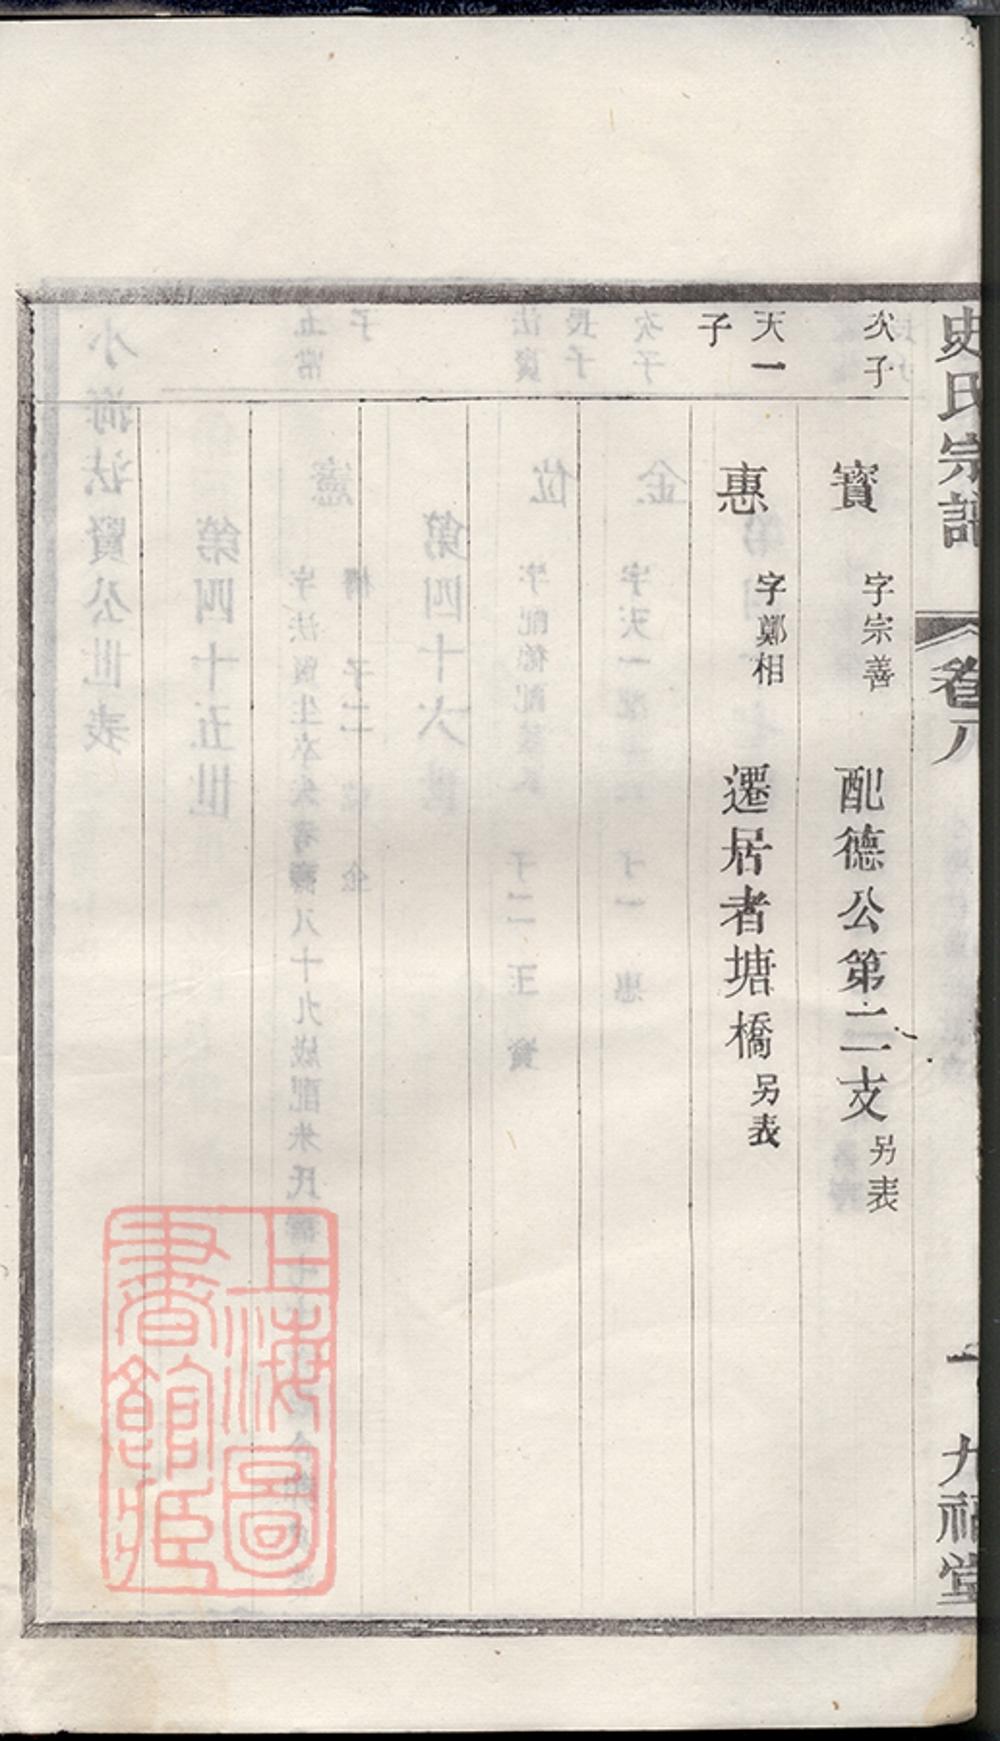 史氏宗譜 卷八 一 九福堂
次子 寳 字宗善 配德公第二支 另表
天一子 惠 字鄭相 遷居者塘橋 另表
上海圖書館藏